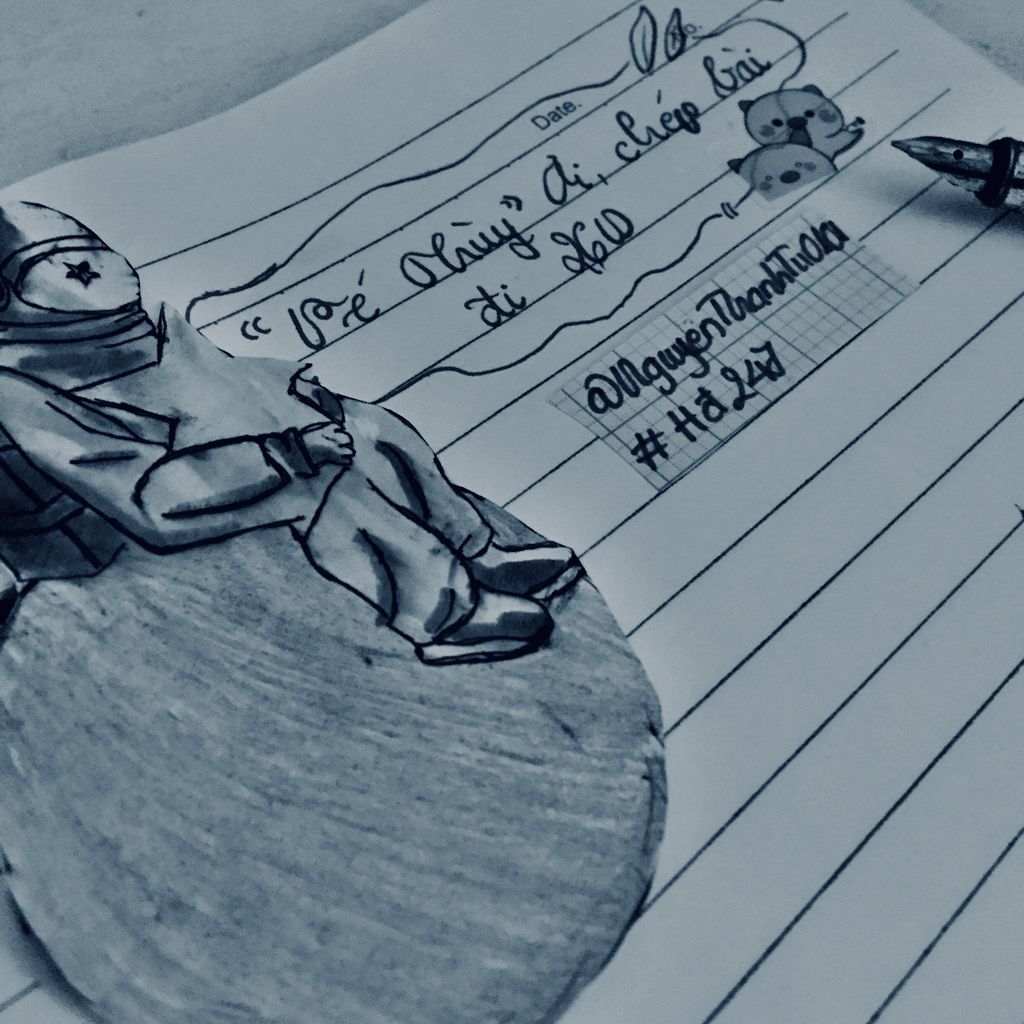 No.
Date.
“Bé Thùy” đi, chép bài
đi
@NguyenThanhTu
#Hđ247